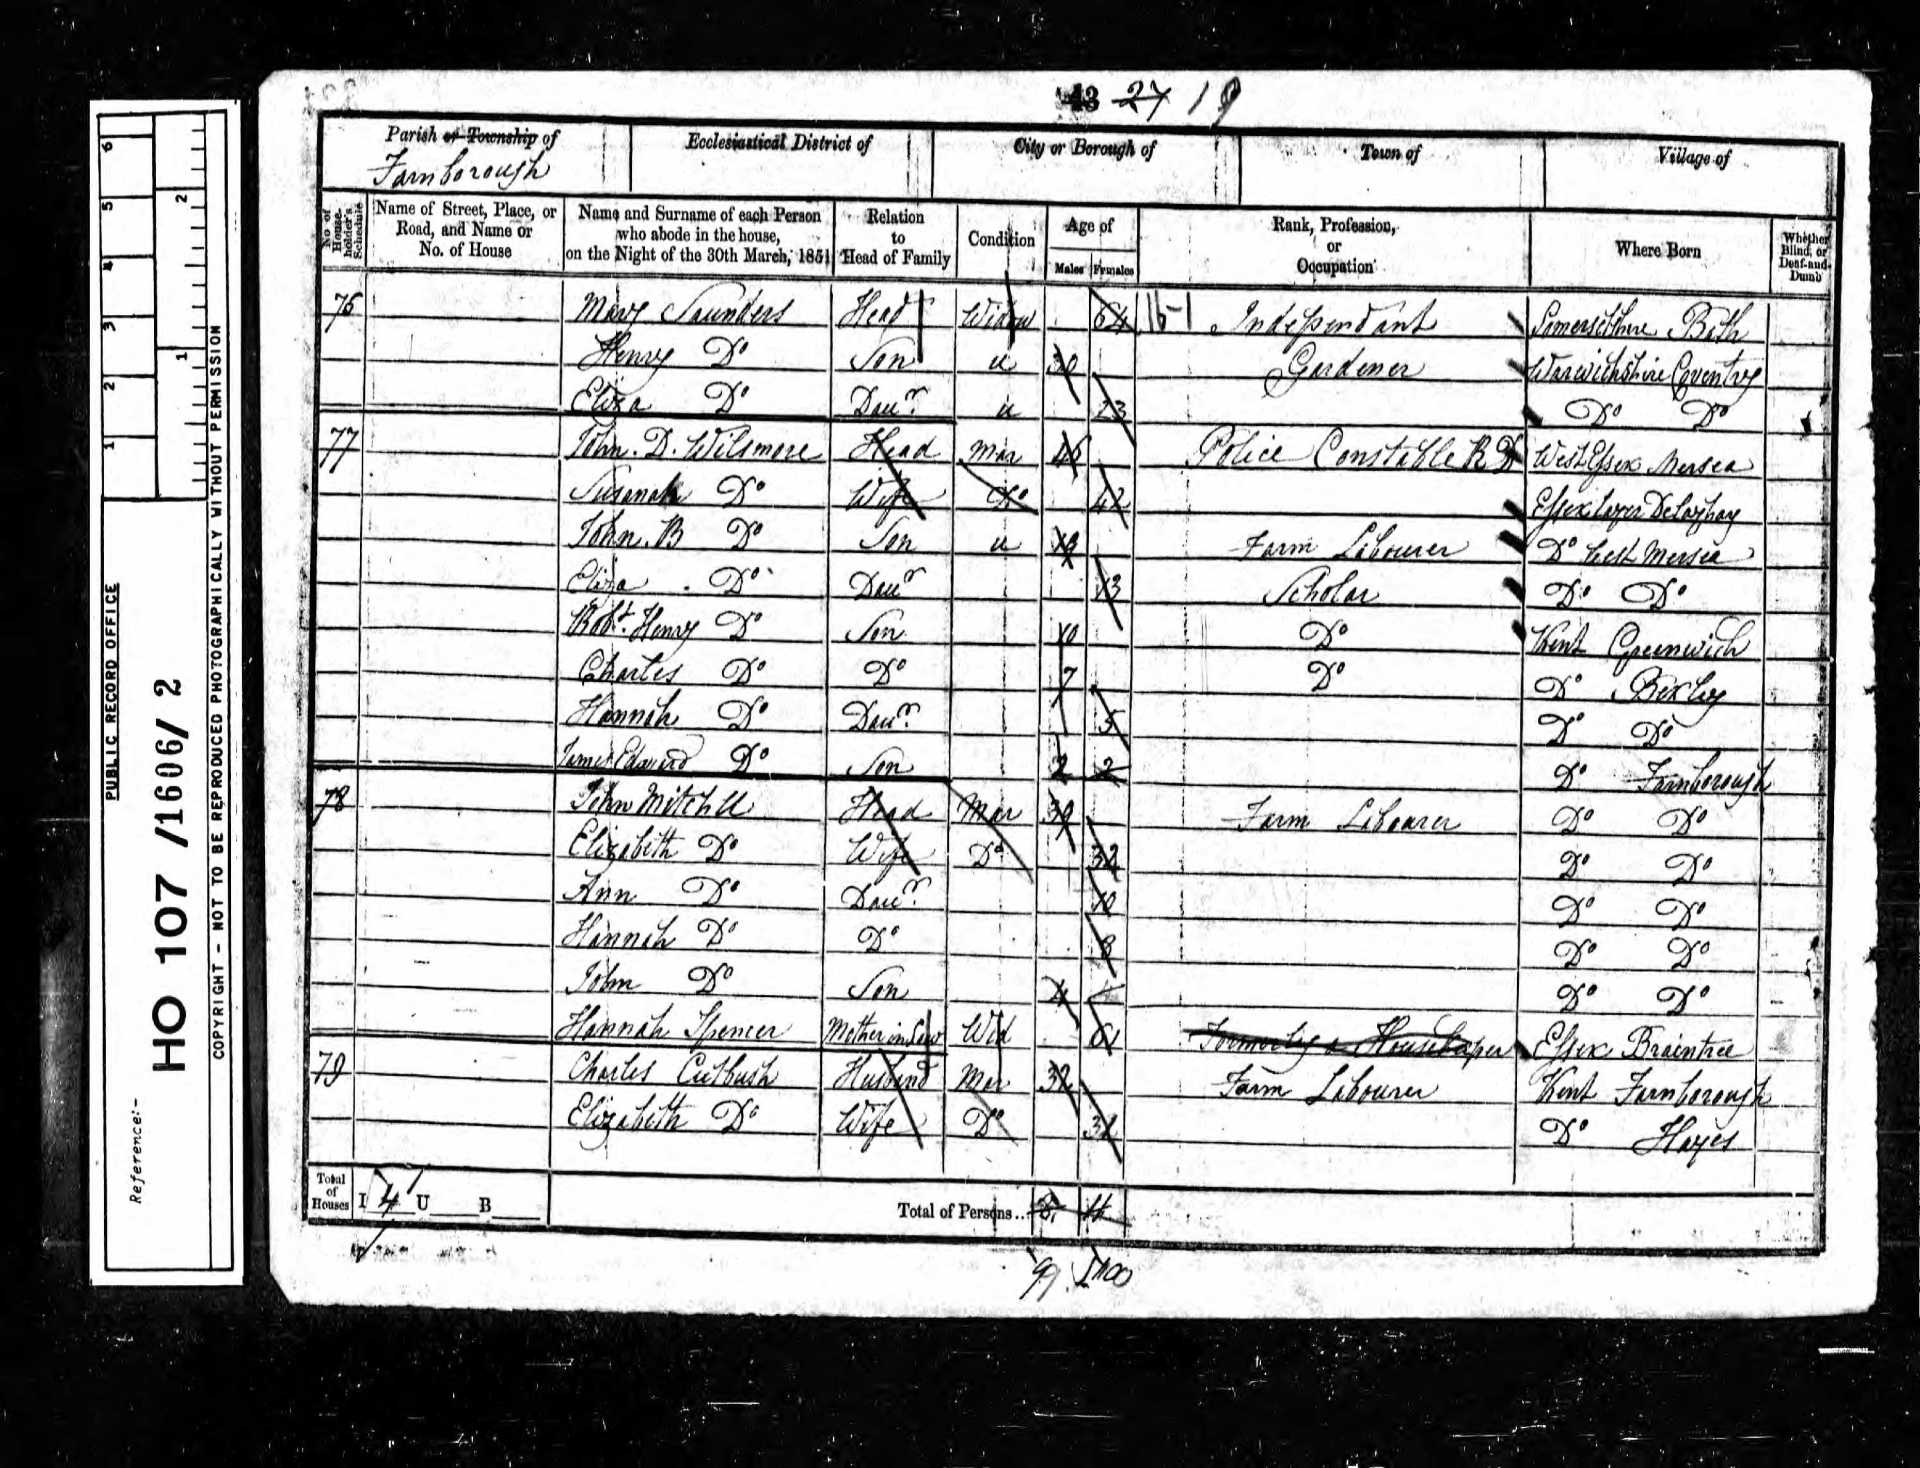 43 27 19
Parish or Township of
Farnborough
Ecclesiastical District of
City or Borough of
Town of
Village of
No of House-holder's Schedule
Name of Street, Place, or Road, and Name or No. of House
Name and Surname of each Person who abode in the house, on the Night of the 30th March, 1851
Relation to Head of Family
Condition
Age of
Males Females
Rank, Profession, or Occupation
Where Born
Whether Blind, or Deaf-and-Dumb
76 Mary Saunders Head Widow 64 Independant Somersetshire Bath
Henry Do Son u 30 Gardener Warwichshire Coventry
Eliza Do Daur. u 23 Do Do
77 John. D. Wilsmore Head Mar 46 Police Constable R West Essex Mersea
Susanah Do Wife Do 42 Essex
John. B Do Son u Farm Labourer Do West Mersea
Eliza Do Daur 13 Scholar Do Do
Robt. Henry Do Son 10 Do Kent Greenwich
Charles Do Do 7 Do Do Bexley
Hannah Do Daur. 5 Do Do
James Edward Do Son 2 2 Do Farnborough
78 John Mitchell Head Mar 39 Farm Labourer Do Do
Elizabeth Do Wife Do 32 Do Do
Ann Do Daur. 10 Do Do
Hannah Do Do 8 Do Do
John Do Son 4 Do Do
Hannah Spencer Mother in Law Wid 61 Formerly a Housekeper Essex Braintree
79 Charles Cutbush Husband Mar 32 Farm Labourer Kent Farnborough
Elizabeth Do Wife Do 32 Do Hayes
Total of Houses I 4 U B
Total of Persons.. 8 11
99 100
PUBLIC RECORD OFFICE
Reference:-
HO 107 /1606/ 2
COPYRIGHT - NOT TO BE REPRODUCED PHOTOGRAPHICALLY WITHOUT PERMISSION
1 2 3 4 5 6
1 2